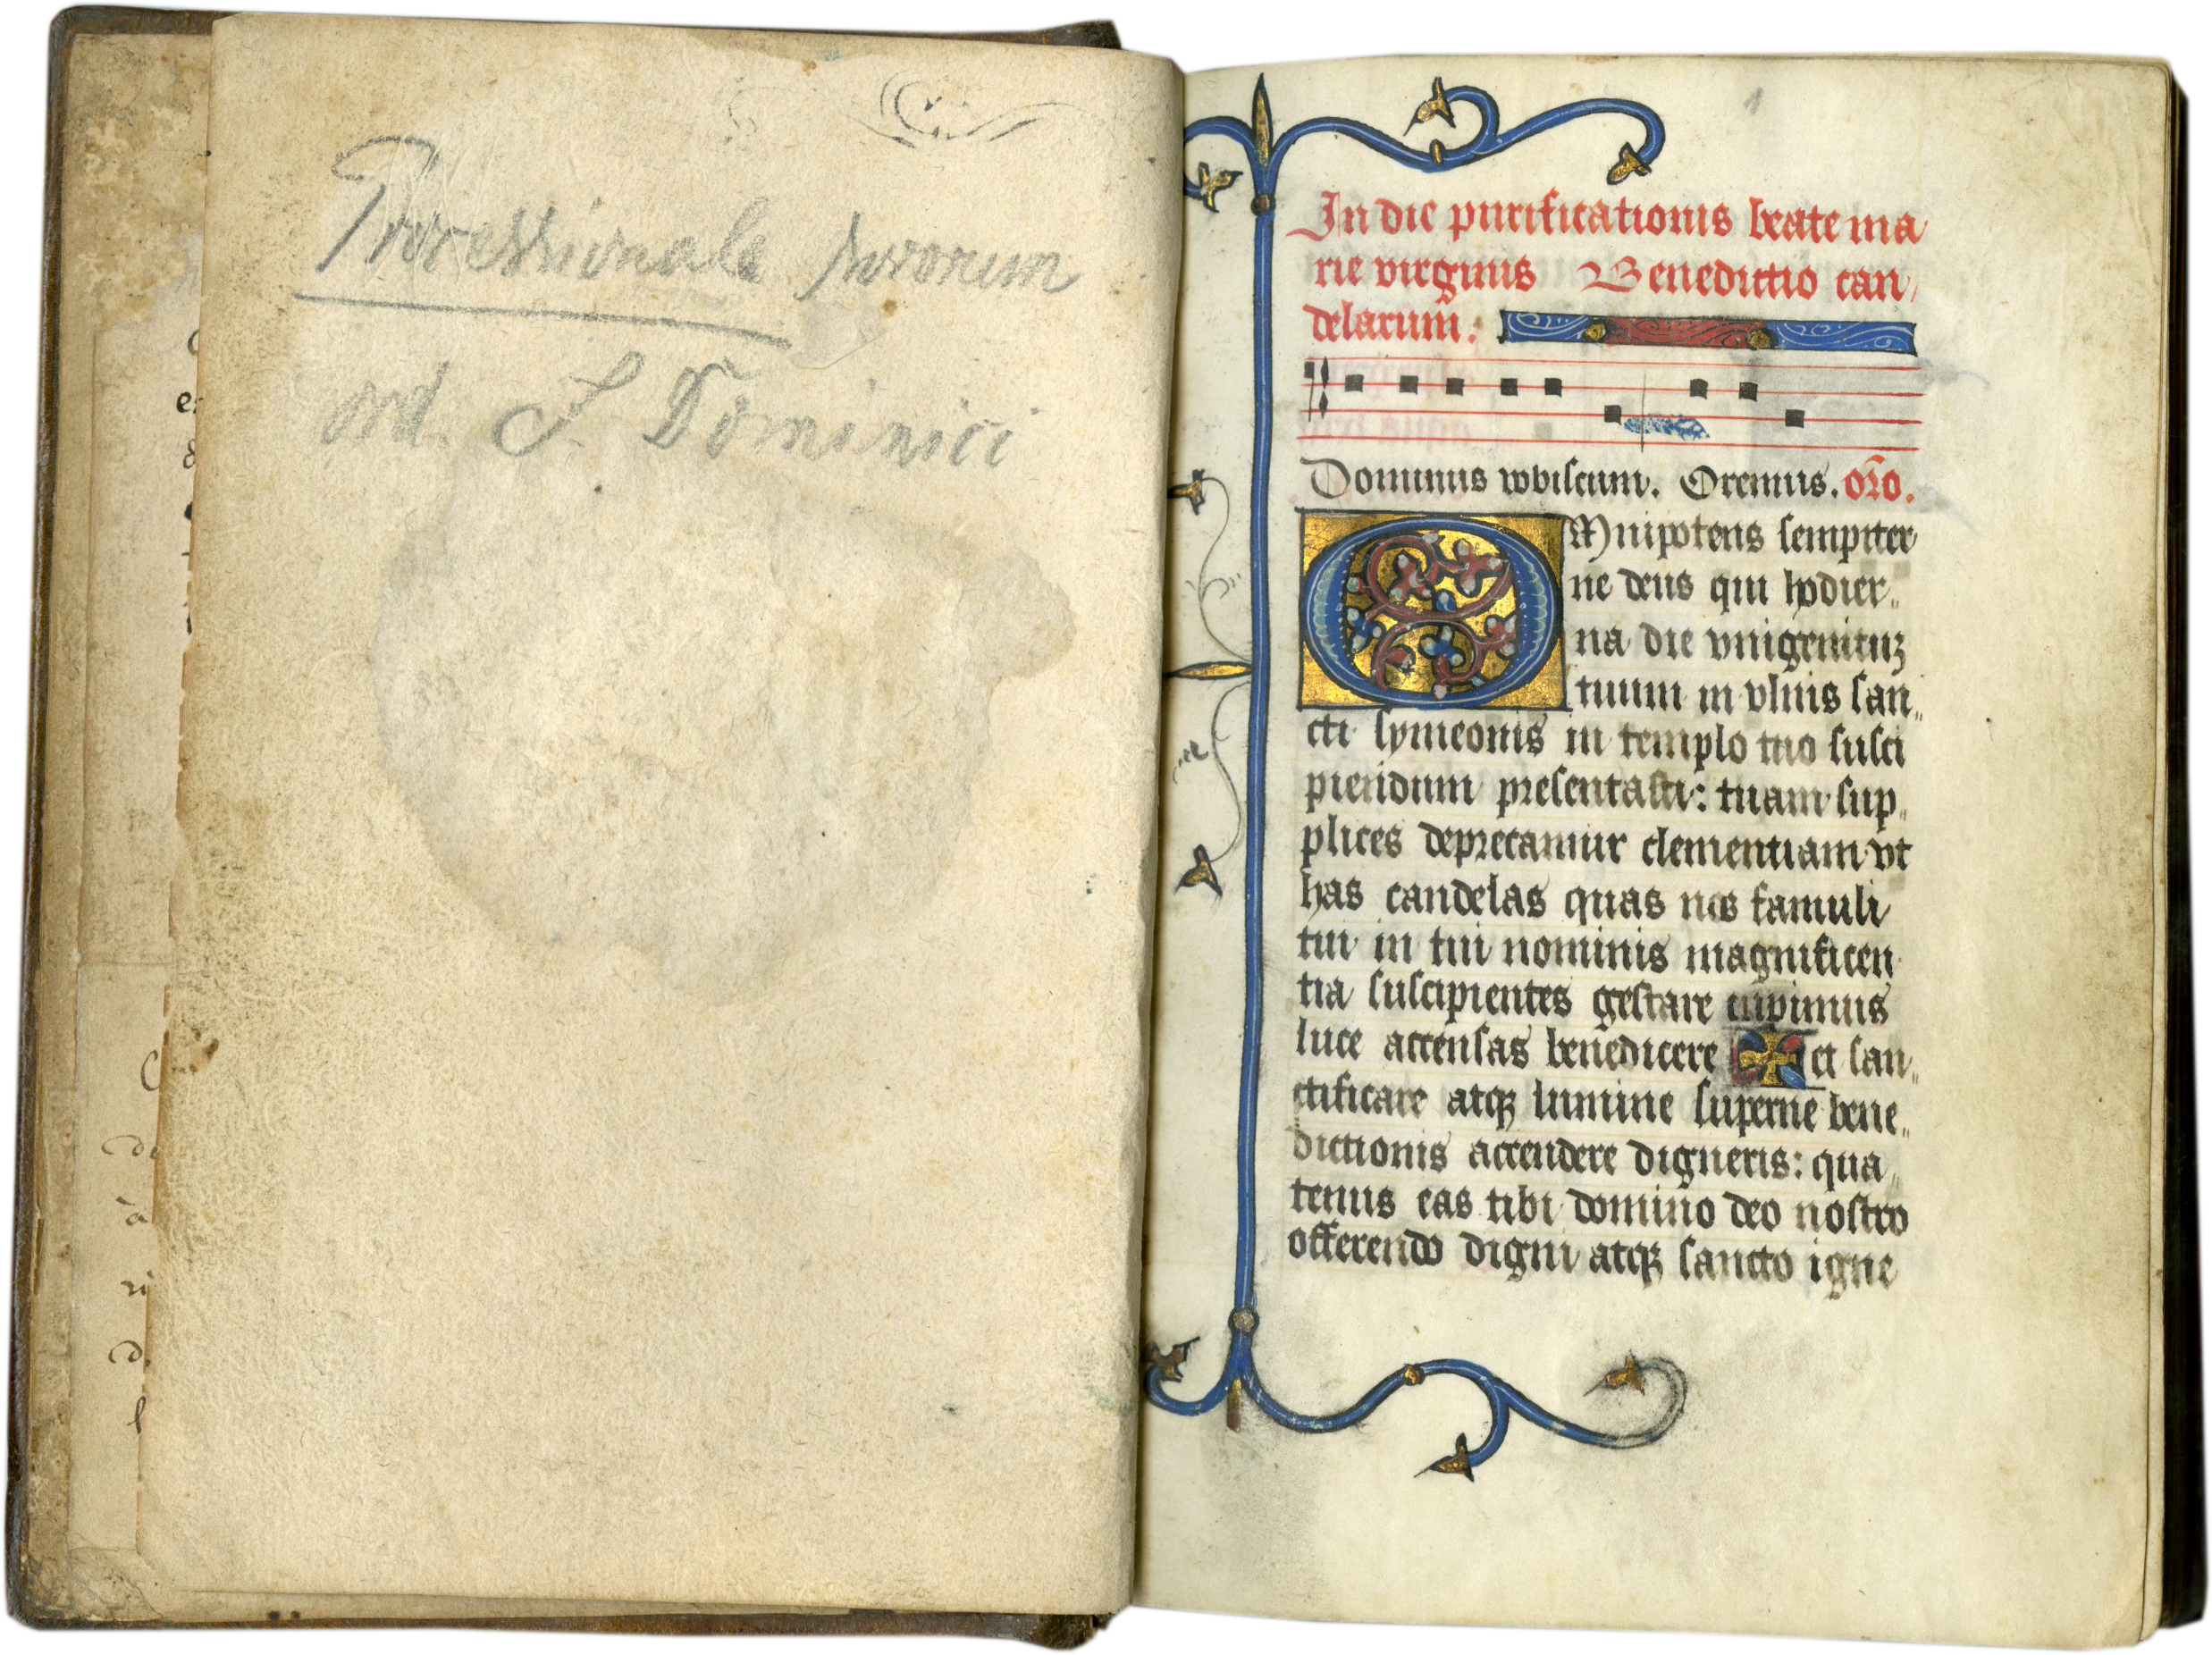 Processionale sororum
ord. S. Dominici
1
In die purificationis beate ma
rie virginis Benedictio can
delarum.
Dominus vobiscum. Oremus. oro.
OMnipotens sempiter
ne deus qui hodier
na die vnigenituꝫ
tuum in vlnis san
cti symeonis in templo tuo susci
piendum presentasti: tuam sup
plices deprecamur clementiam vt
has candelas quas nos famuli
tui in tui nominis magnificen
tia suscipientes gestare cupimus
luce accensas benedicere ✠ et san
ctificare atqꝫ lumine superne bene
dictionis accendere digneris: qua
tenus eas tibi domino deo nostro
offerendo digni atqꝫ sancto igne